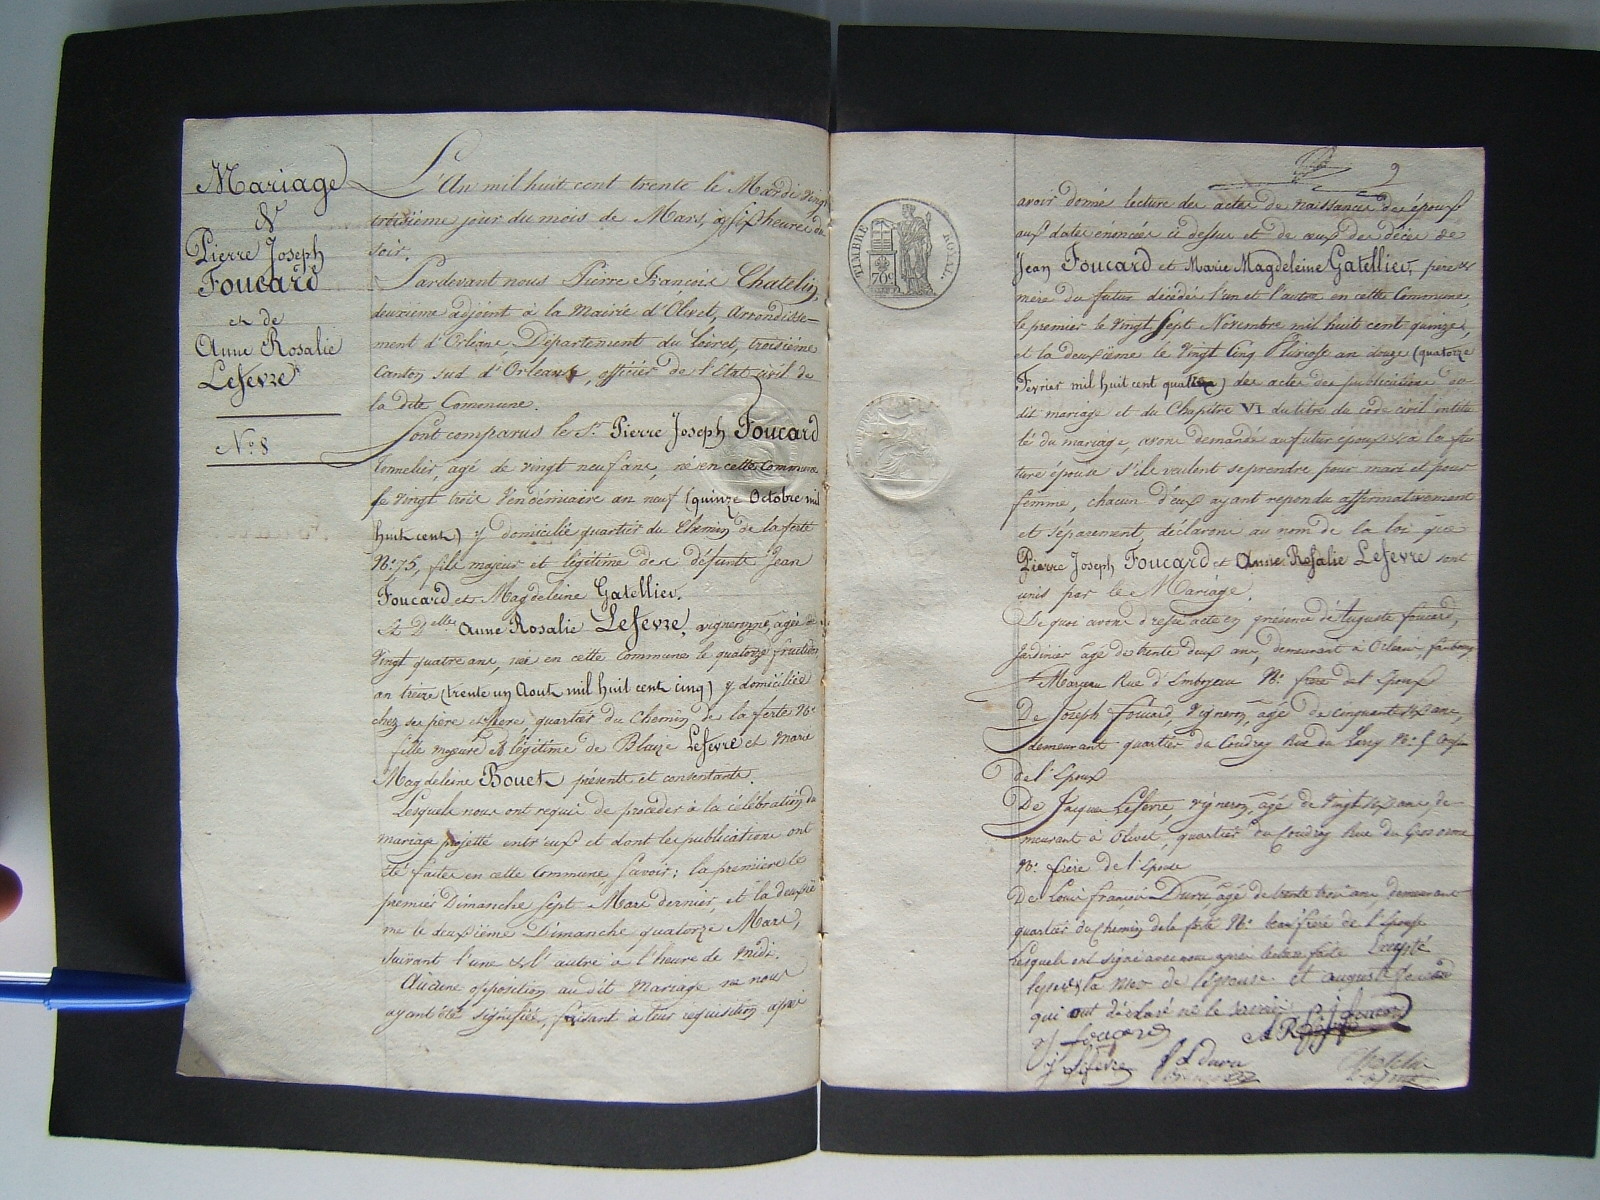 Mariage
de
Pierre Joseph
Foucard
et de
Anne Rosalie
Lefevre
N.o 8
L'An mil huit cent trente le Mardi vingt
troisième jour du mois de Mars, à six heures du
soir.
Pardevant nous Pierre François Chatelin,
deuxième adjoint à la Mairie d'Olivet, Arrondisse-
ment d'Orléans, Département du Loiret, troisième
Canton sud d'Orléans, officier de l'Etat civil de
la dite Commune.
Sont comparus le S.r Pierre Joseph Foucard
tonnelier, agé de vingt neuf ans, né en cette Commune
le vingt trois Vendémiaire an neuf (quinze Octobre mil
huit cent) y domicilié quartier du Chemin de la ferté
N.o 75, fils majeur et légitime des défunts Jean
Foucard et Magdeleine Gatellier.
& D.elle Anne Rosalie Lefevre, vigneronne, agée de
vingt quatre ans, née en cette commune le quatorze fructidor
an treize (trente un Aout mil huit cent cinq) y domiciliée
chez ses père et Mère quartier du Chemin de la ferté N.o
fille majeure & légitime de Blaize Lefevre et Marie
Magdeleine Bouet, présents et consentants.
Lesquels nous ont requis de procéder à la célébration du
mariage projetté entr'eux et dont les publications ont
été faites en cette Commune, Savoir: la première le
premier Dimanche sept Mars dernier, et la deuxiè
me le deuxième Dimanche quatorze Mars,
suivant l'une & l'autre à l'heure de midi.
Aucune opposition au dit mariage ne nous
ayant été signifiée, faisant à leur réquisition après
9
TIMBRE ROYAL
70c
avoir donné lecture des actes de naissances des époux
aux dates enoncées ci dessus et de ceux des décès de
Jean Foucard et Marie Magdeleine Gatellier, père &
mère du futur décédés l'un et l'autre en cette Commune,
le premier le vingt Sept Novembre mil huit cent quinze,
et la deuxième le vingt cinq Pluviose an douze (quatorze
Fevrier mil huit cent quatre) des actes des publications du
dit mariage et du Chapitre VI du titre du code civil intitu
lé du mariage, avons demandé au futur epoux & à la fu
ture épouse s'ils veulent se prendre pour mari et pour
femme, chacun d'eux ayant repondu affirmativement
et séparement, déclarons au nom de la loi que
Pierre Joseph Foucard et Anne Rosalie Lefevre sont
unis par le Mariage.
De quoi avons dressé acte en présence de Auguste foucard,
Jardinier agé de trente deux ans, demeurant à Orleans faubourg
S.t Marceau Rue d'Embryeau N.o frère de l'Epoux
De Joseph Foucard, Vigneron, agé de cinquante six ans,
demeurant quartier du Coudray Rue du N.o 5
de l'Epoux
De Jacques Lefevre, vigneron, agé de vingt six ans de-
meurant à Olivet, quartier du Coudray Rue du Gros orme
N.o frère de l'Epouse
De Louis François Duru, agé de trente trois ans demeurant
quartier du Chemin de la ferté N.o beau frère de l'Epouse
Lesquels ont signé avec nous après lecture faite Excepté
le pere & la mere de l'epouse et auguste foucard
qui ont déclaré ne le savoir
J foucard
A R Lefevre
J foucard
J Lefevre
f L duru
Chatelin